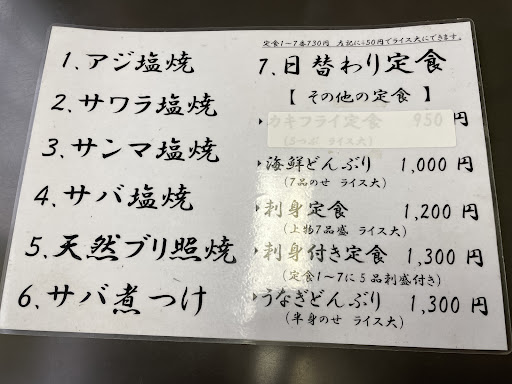 定食1～7番730円 表記に+50円でライス大にできます。
1.アジ塩焼
2.サワラ塩焼
3.サンマ塩焼
4.サバ塩焼
5.天然ブリ照焼
6.サバ煮つけ
7.日替わり定食
【 その他の定食 】
カキフライ定食 950円
(5つぶ ライス大)
海鮮どんぶり 1,000円
(7品のせ ライス大)
刺身定食 1,200円
(上物7品盛 ライス大)
刺身付き定食 1,300円
(定食1～7に5品刺盛付き)
うなぎどんぶり 1,300円
(半身のせ ライス大)